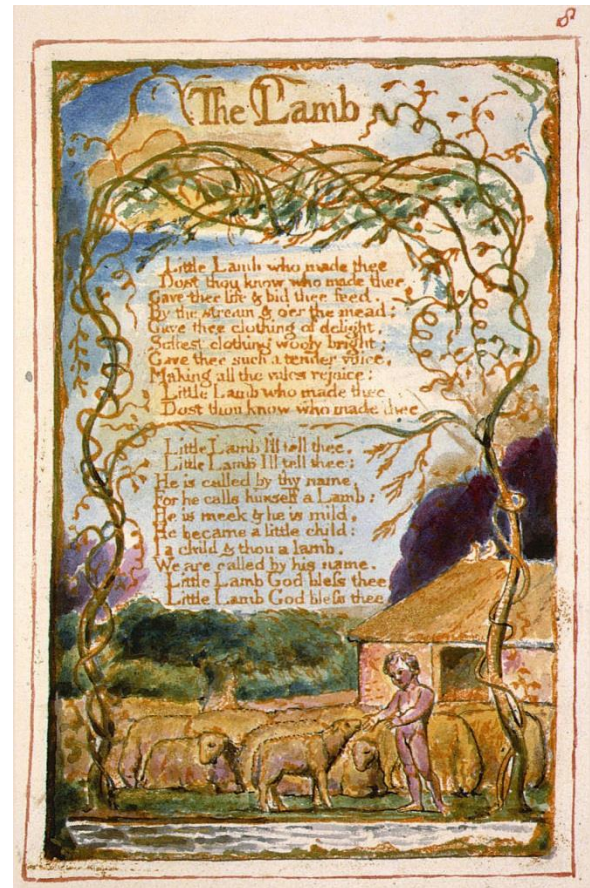 8
The Lamb
Little Lamb who made thee
Dost thou know who made thee
Gave thee life & bid thee feed.
By the stream & oer the mead;
Gave thee clothing of delight,
Softest clothing wooly bright;
Gave thee such a tender voice,
Making all the vales rejoice:
Little Lamb who made thee
Dost thou know who made thee
Little Lamb I'll tell thee,
Little Lamb I'll tell thee:
He is called by thy name,
For he calls himself a Lamb:
He is meek & he is mild,
He became a little child:
I a child & thou a lamb,
We are called by his name.
Little Lamb God bleſs thee
Little Lamb God bleſs thee